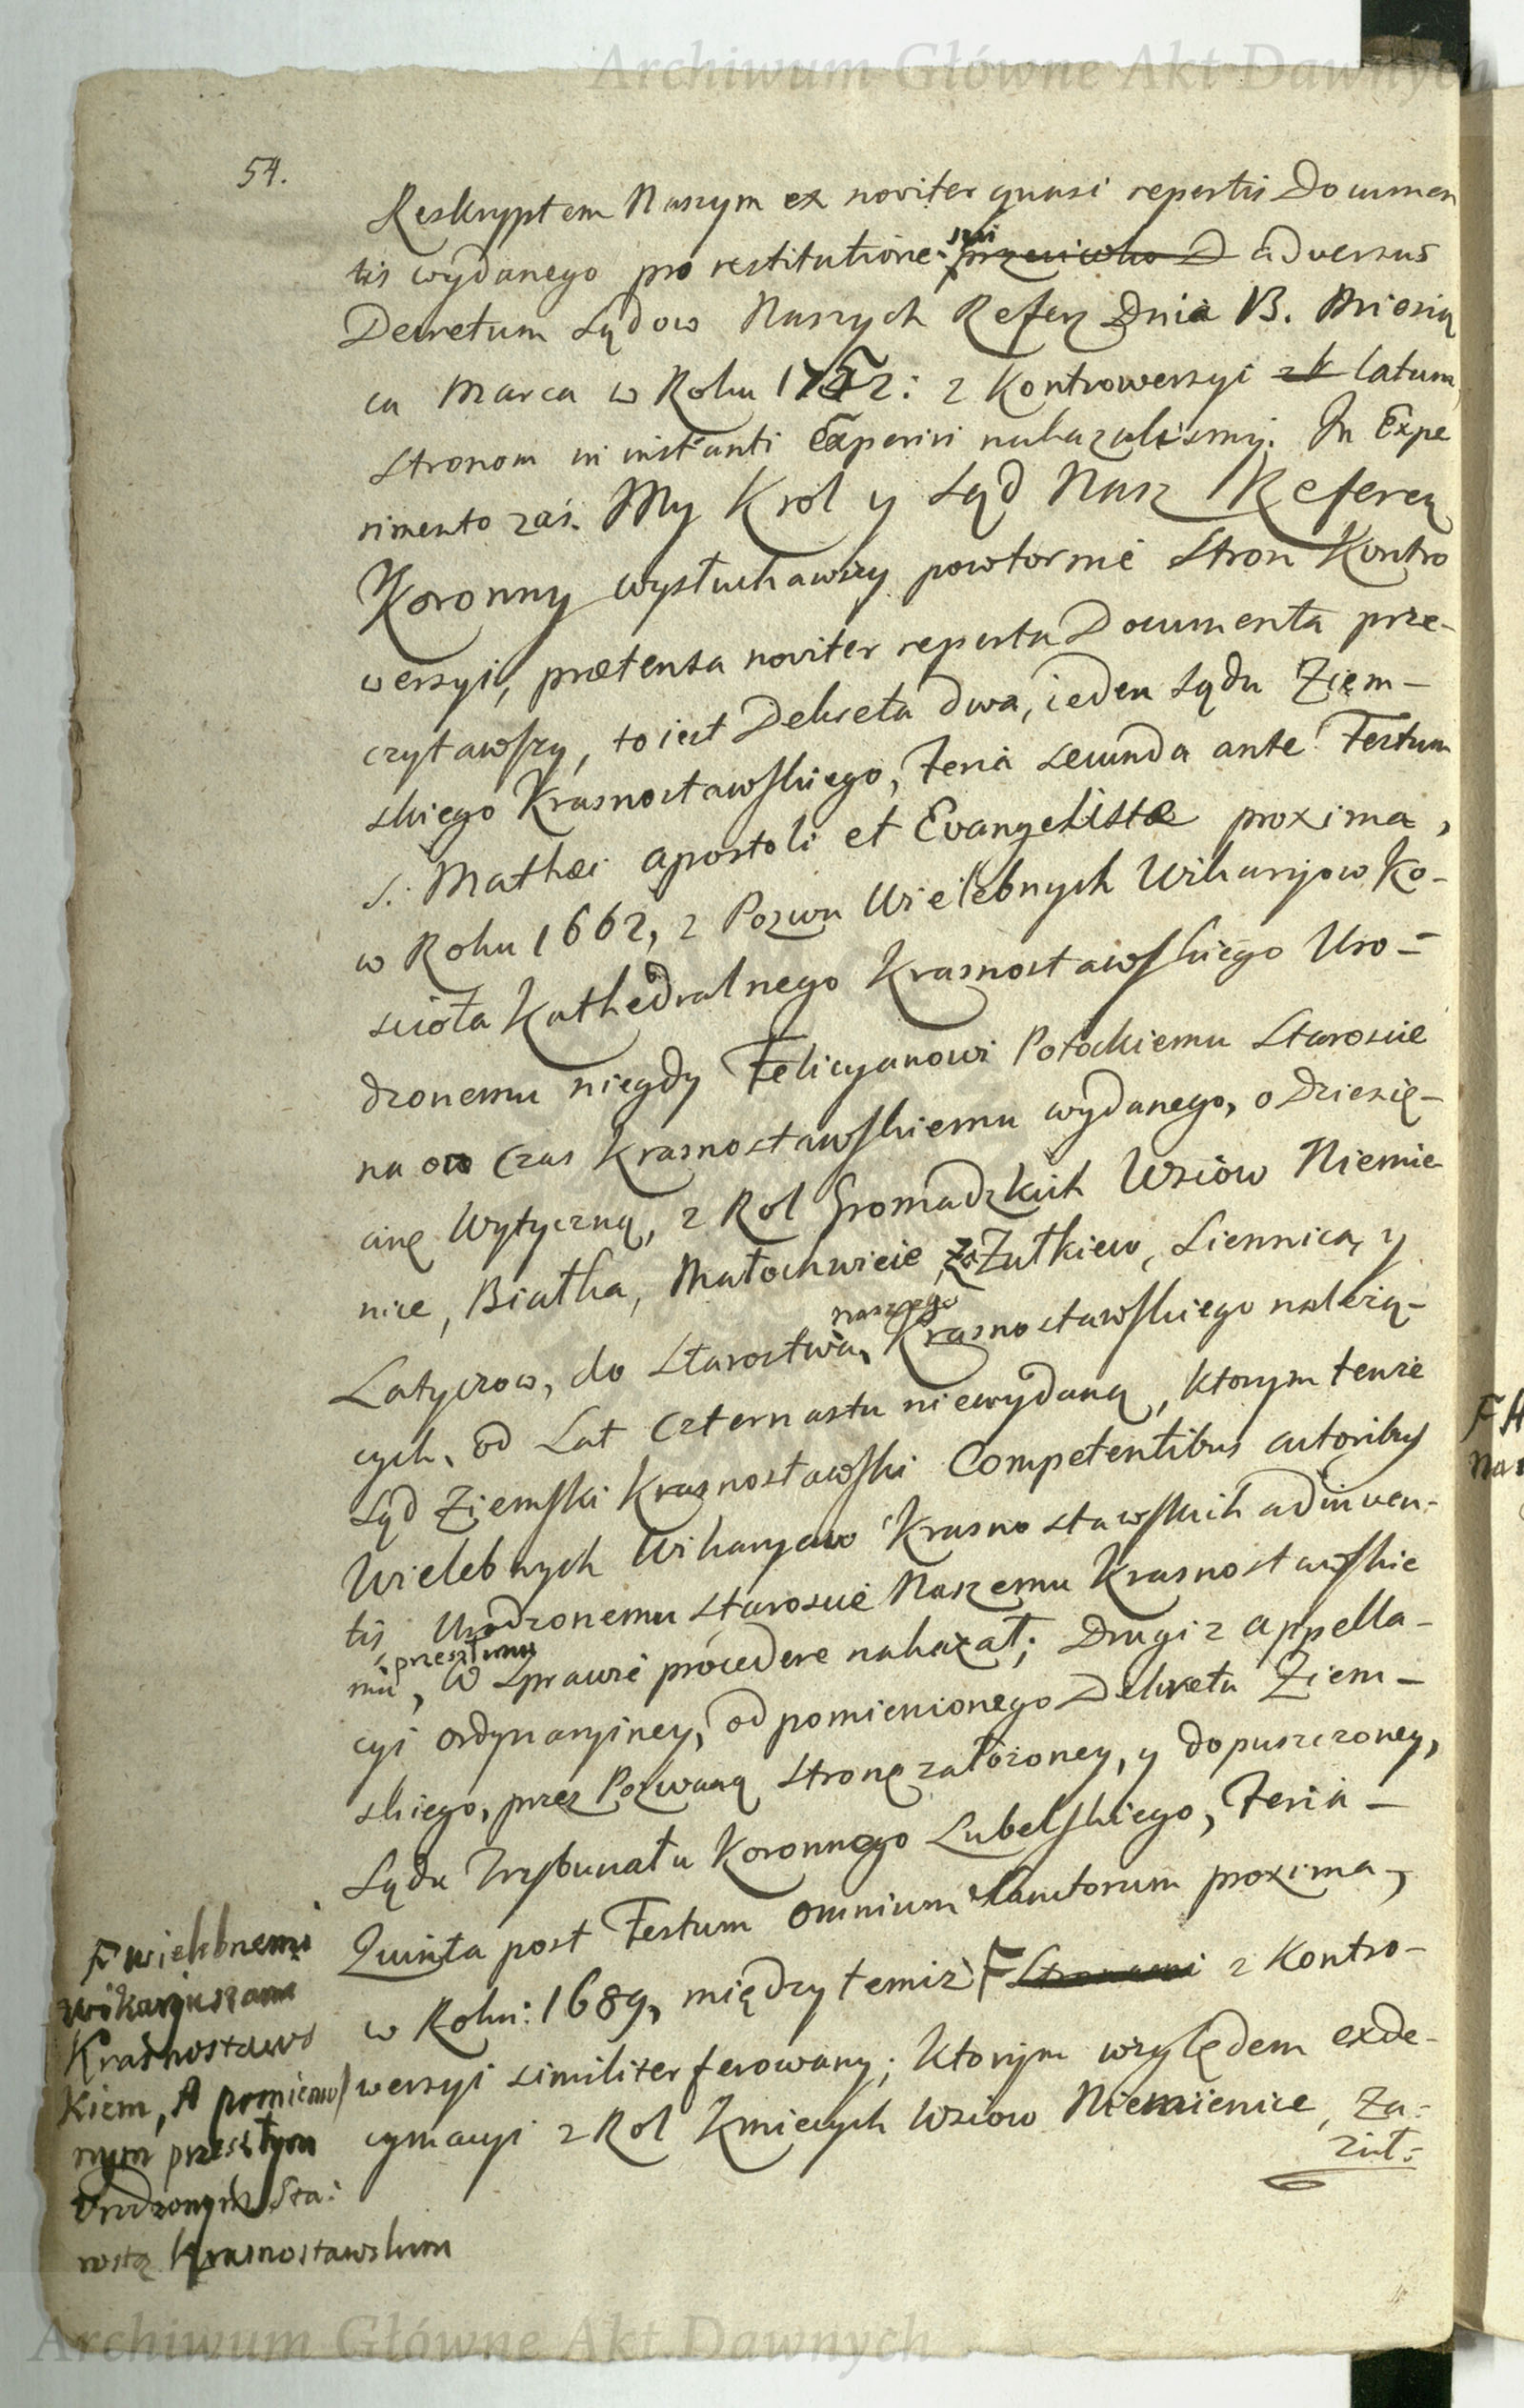 Archiwum Główne Akt Dawnych
54.
Reskryptem Naszym ex noviter quasi repertis Documen
tis wydanego pro restitutione sui przeciwko D adversus
Decretum Sądow Naszych Referen Dnia 13. Miesią
ca Marca w Roku 1752: z Kontrowersyi latum,
Stronom in instanti Experiri nakazalismy. In Expe
rimento zaś. My Krol y Sąd Nasz Referen
Koronny wysłuchawszy powtornie Stron Kontro
wersyi, prætensa noviter reperta Documenta prze-
czytawszy, to iest Dekreta dwa, ieden Sądu Ziem-
skiego Krasnostawskiego, Feria secunda ante Festum
S. Mathæi Apostoli et Evangelistæ proxima,
w Roku 1662, z Pozwu Wielebnych Wikaryow Ko-
scioła Kathedralnego Krasnostawskiego Uro-
dzonemu niegdy Felicyanowi Potockiemu Staroscie
na ow czas Krasnostawskiemu wydanego, o Dziesię-
cinę Wytyczną, z Rol Gromadzkich Wsiow Niemie
nice, Białka, Małochwieie, Zułkiew, Siennica, y
Latyczow, do Starostwa naszego Krasnostawskiego należą-
cych, od Lat czternastu niewydaną, ktorym tenże
Sąd Ziemski Krasnostawski Competentibus actoribus
Wielebnych Wikaryow Krasnostawskich adinven-
tis, Urodzonemu Staroscie Naszemu Krasnostawskie
mu, przeszłemu W Sprawie procedere nakazał; Drugi z appella-
cyi ordynaryiney, od pomienionego Dekretu Ziem-
skiego, przez Pozwaną Stronę założoney, y dopuszczoney,
Sądu Trybunału Koronnego Lubelskiego, Feria-
Quinta post Festum Omnium Sanctorum proxima,
w Roku: 1689, między temiż F Stronami z Kontro-
wersyi similiter ferowany; ktorym względem exde-
cymacyi z Rol Kmiecych Wsiow Niemienice, Za-
zuł:
F wielebnemi
wikaryuszami
Krasnostaws
kiem, A pomienio
nym przeszłym
Urodzonym Sta:
rostą Krasnostawskim
Archiwum Główne Akt Dawnych